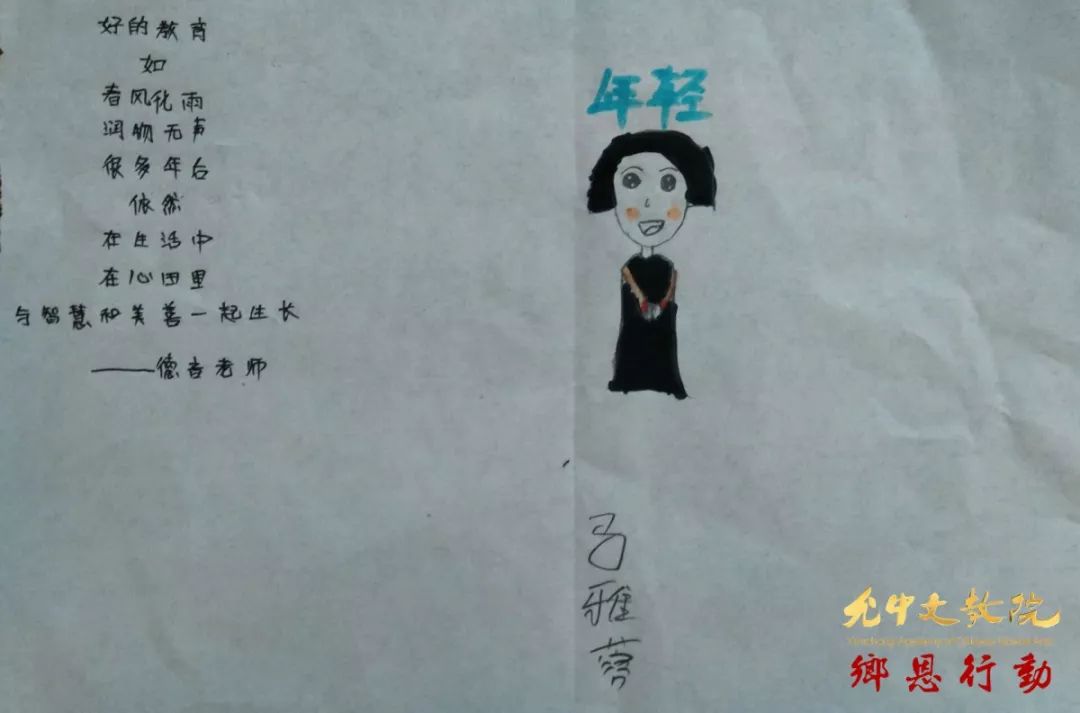 好的教育
如
春风化雨
润物无声
很多年后
依然
在生活中
在心田里
与智慧和美善一起生长
——德吉老师
年轻
吕雅蓉
允中文教院
鄉恩行動